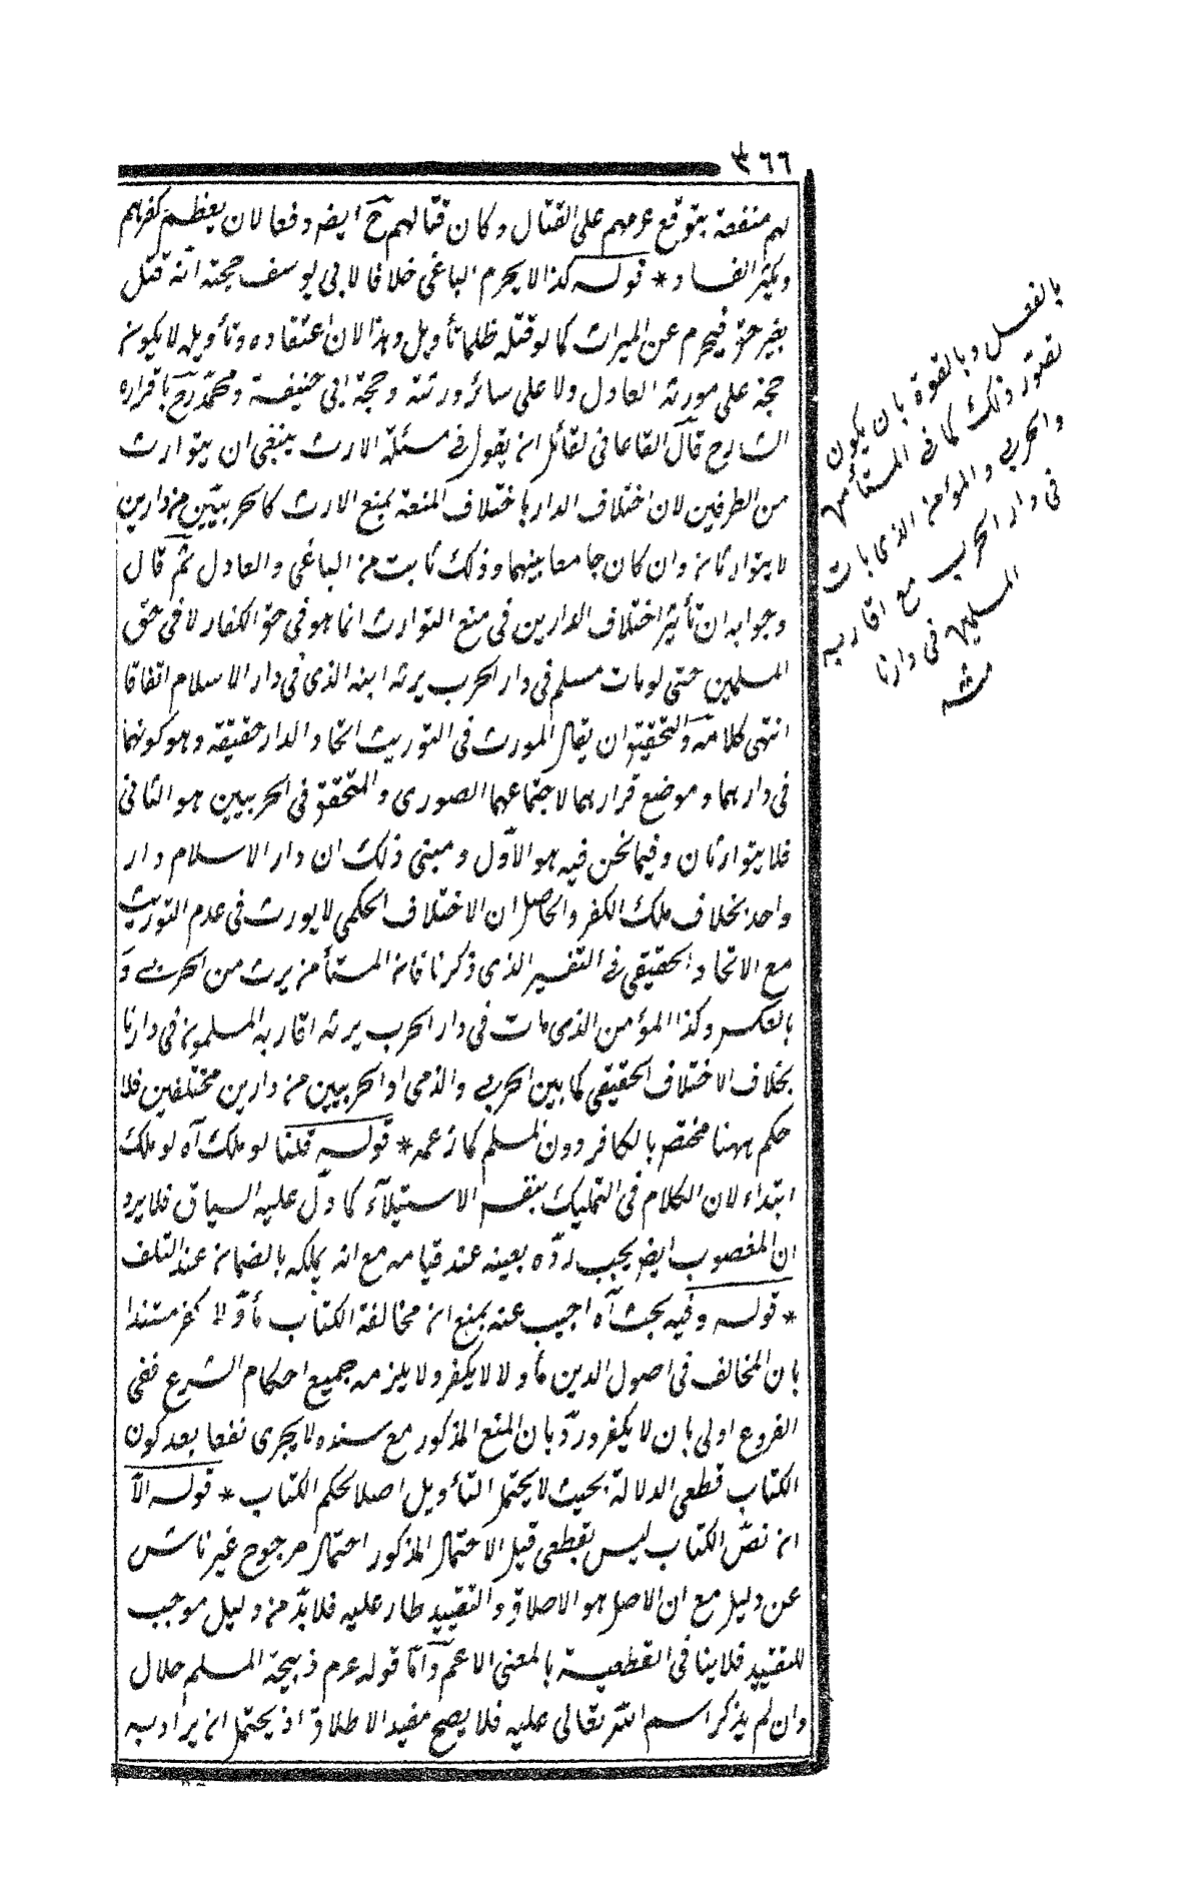 ٣٦٦
لهم منفعة بتوقع عرمهم على القتال وكان قتالهم ح ايض دفعا لان يعظم كفرهم
ويكثر الفساد * قوله كذا لا يحرم الباغى خلافا لابى يوسف حجته انه قتل
بغير حق فيحرم عن الميراث كما لو قتله ظلما بلا تأويل وهذا لان اعتقاده وتأويله لا يكون
حجة على مورثه العادل ولا على سائر ورثته وحجة ابى حنيفة ومحمد رح ما قراره
الشارح قال القاءانى لقائل ان يقول فى مسئلة الارث ينبغى ان يتوارث
من الطرفين لان اختلاف الدار باختلاف المنعة يمنع الارث كالحربيين من دارين
لا يتوارثان وان كان جامعا بينهما وذلك ثابت من الباغى والعادل ثم قال
وجوابه ان تأثير اختلاف الدارين فى منع التوارث انما هو فى حق الكفار لا فى حق
المسلمين حتى لو مات مسلم فى دار الحرب يرثه ابنه الذى فى دار الاسلام اتفاقا
انتهى كلامه والتحقيق ان يقال المورث فى التوريث اتحاد الدار حقيقة وهو كونهما
فى دارهما وموضع قرارهما لا اجتماعهما الصورى والمتحقق فى الحربيين هو الثانى
فلا يتوارثان وفيما نحن فيه هو الاول ومبنى ذلك ان دار الاسلام دار
واحد بخلاف ملك الكفر والحاصل ان الاختلاف الحكمى لا يورث فى عدم التوريث
مع الاتحاد الحقيقى فى التفسير الذى ذكرنا فان المستأمن يرث من الحربى و
بالعكس وكذا المؤمن الذى مات فى دار الحرب يرثه اقاربه المسلمون فى دارنا
بخلاف الاختلاف الحقيقى كما بين الحربى والذمى او الحربيين من دارين مختلفين فلا
حكم ههنا مختص بالكافر دون المسلم كما زعمه * قوله قلنا لو ملك آه لو ملك
ابتداء لان الكلام فى التمليك بنفس الاستيلاء كما دل عليه السياق فلا يرد
ان المغصوب ايض يجب رده بعينه عند قيامه مع انه يملكه بالضمان عند التلف
* قوله وفيه بحث آه اجيب عنه بمنع ان مخالفة الكتاب مأولا كفر مستندا
بان المخالف فى اصول الدين مأولا لا يكفر ولا يلزمه جميع احكام الشرع ففى
الفروع اولى بان لا يكفر ورد بان المنع المذكور مع سنده لا يجرى نفعا بعد كون
الكتاب قطعى الدلالة بحيث لا يحتمل التأويل اصلا لحكم الكتاب * قوله الا
ان نص الكتاب ليس بقطعى قيل الاحتمال المذكور احتمال مرجوح غير ناش
عن دليل مع ان الاصل هو الاطلاق والتقييد طار عليه فلا بد من دليل موجب
للتقييد فلا ينافى القطعية بالمعنى الاعم واما قوله عرم ذبيحة المسلم حلال
وان لم يذكر اسم الله تعالى عليه فلا يصح مفيد الاطلاق اذ يحتمل ان يراد به
بالفعل وبالقوة بان يكون
تصور ذلك كما فى المستأمن
والحربى والمؤمن الذى مات
فى دار الحرب مع اقاربه
المسلمين فى دارنا
منه